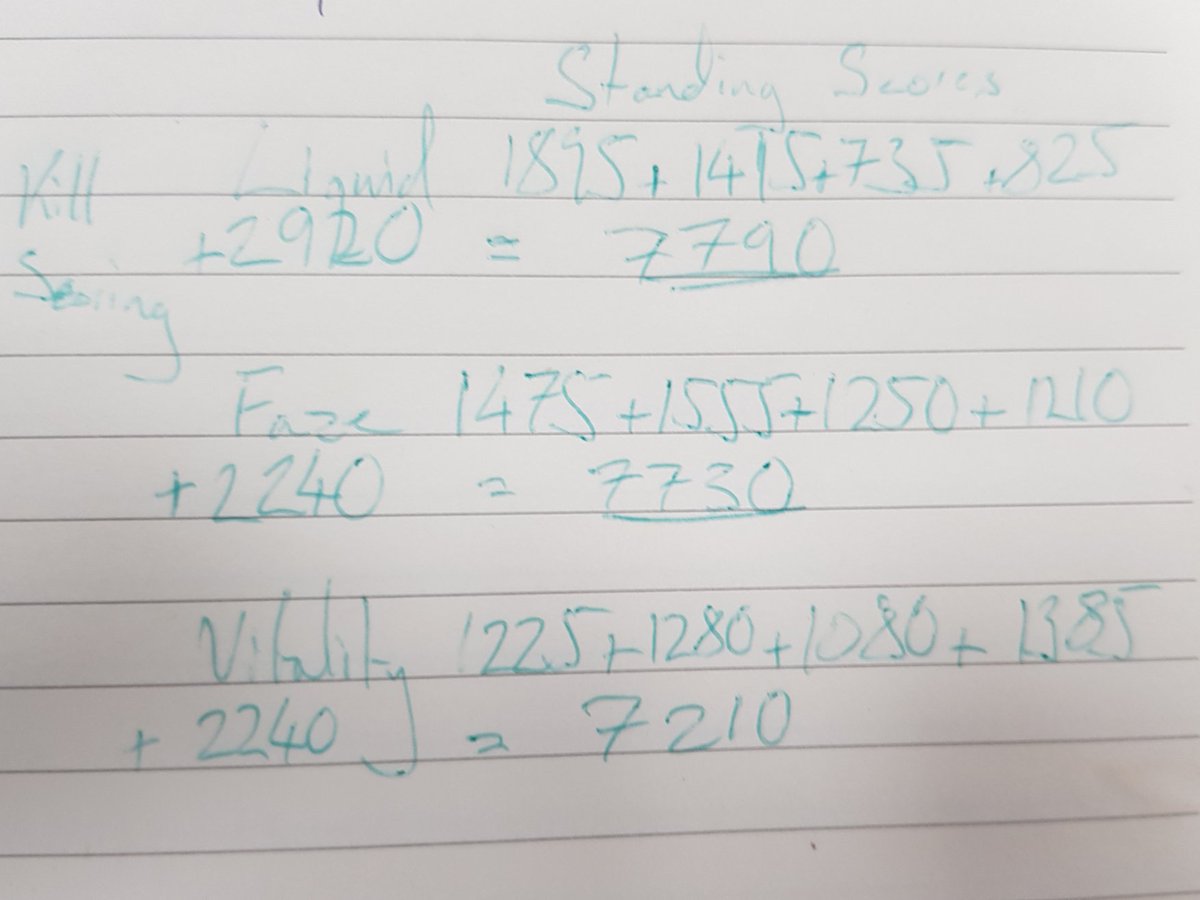 Standing Scores
Kill Liquid 1895 + 1415 + 735 + 825
+2920 = 7790
Scoring
Faze 1475 + 1555 + 1250 + 1210
+2240 = 7730
Vitality 1225 + 1280 + 1080 + 1385
+ 2240 = 7210